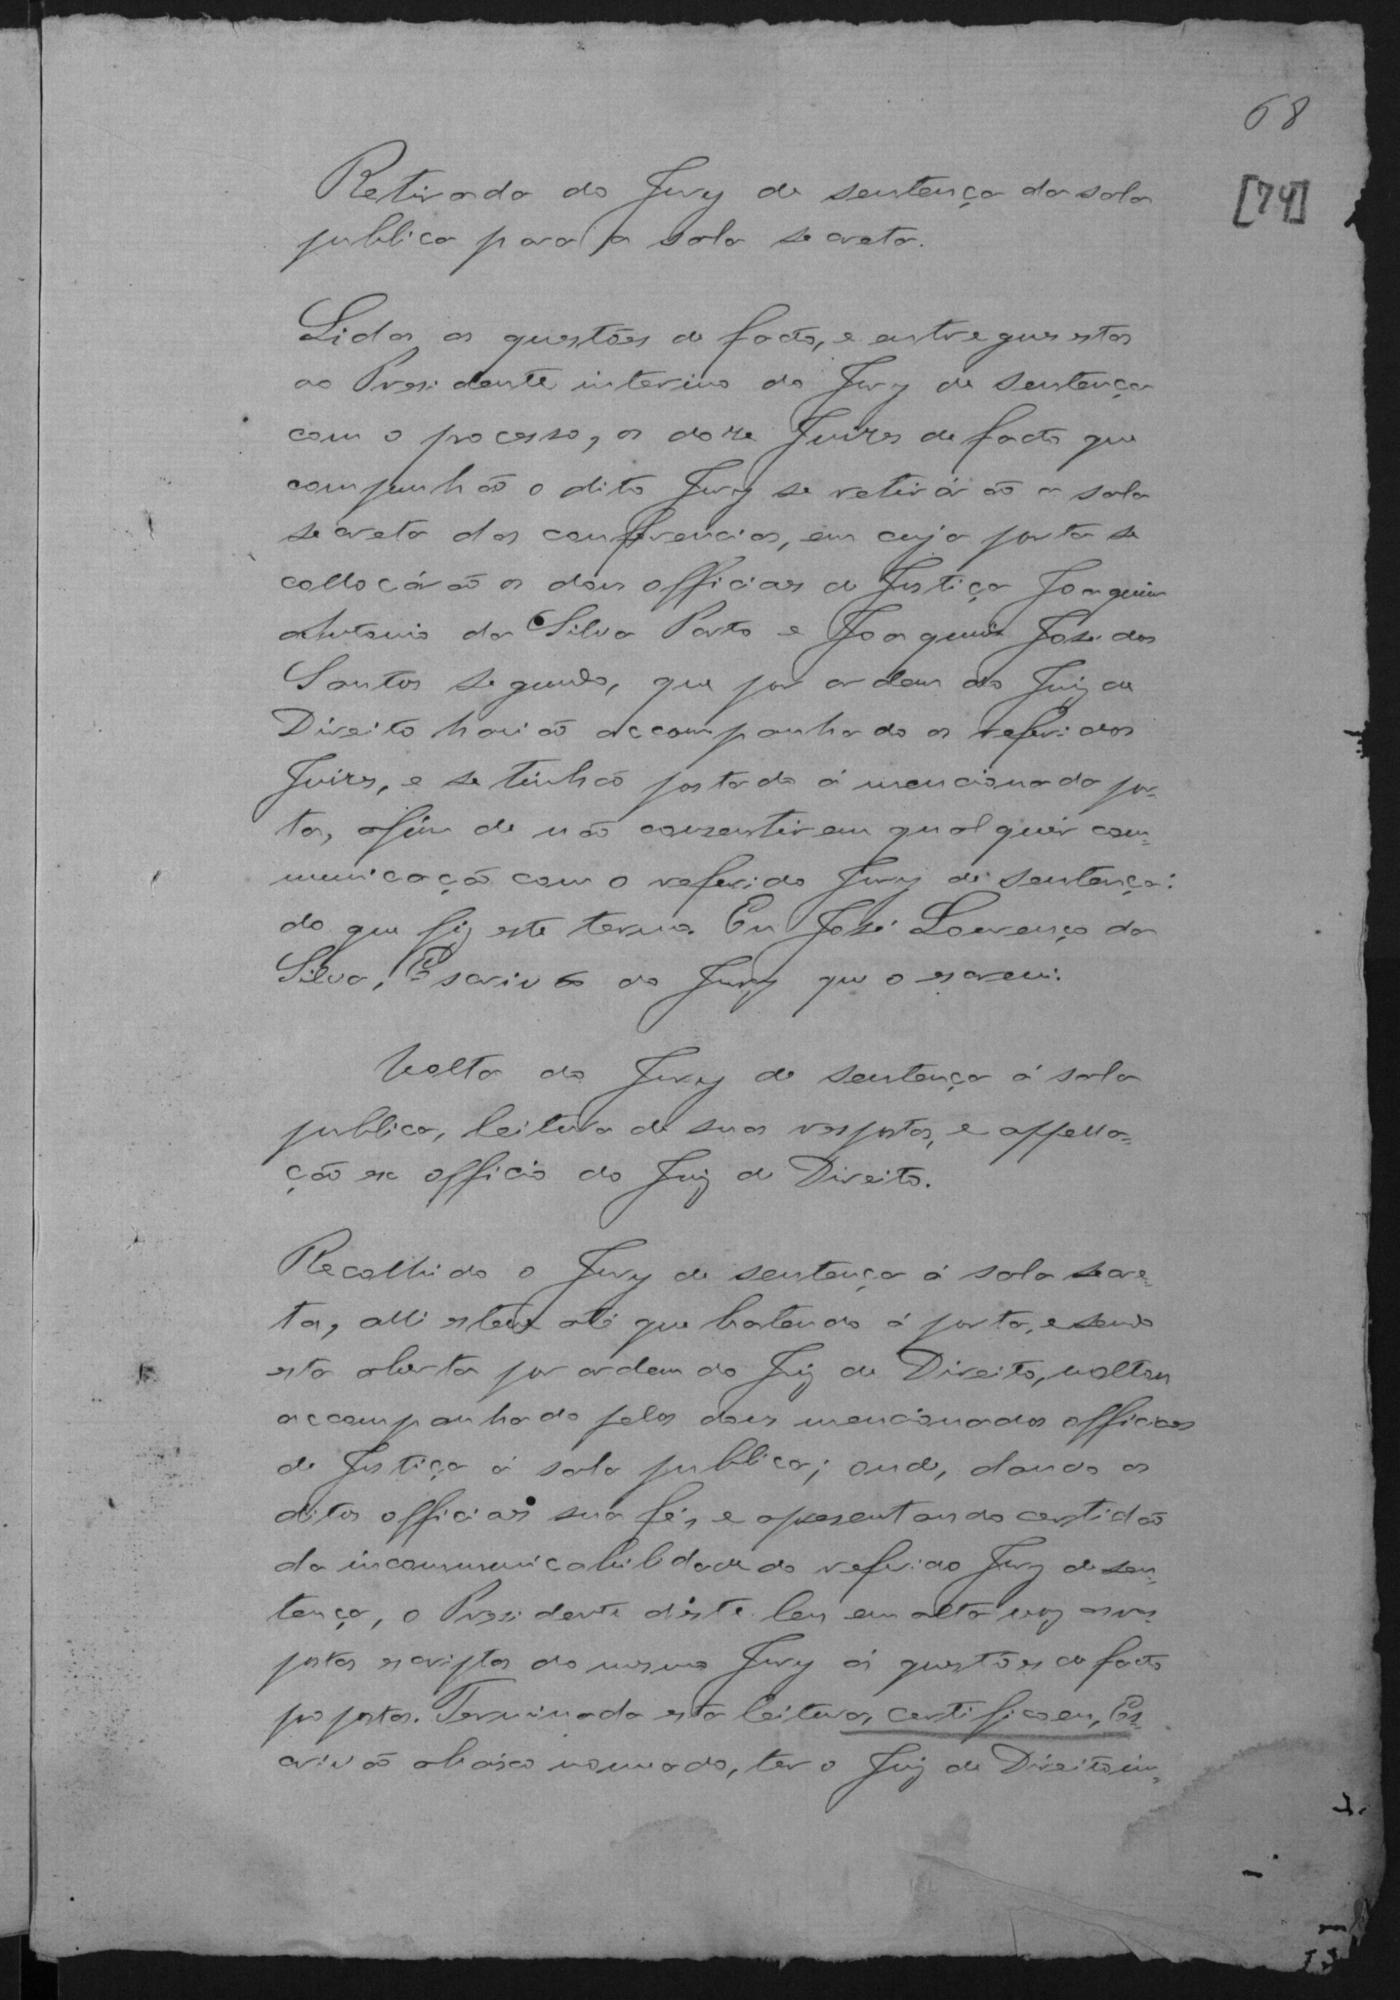 68
[74]
Retirada do Jury de sentença da sala
publica para a sala secreta.
Lidas as questões de facto, e entregues estas
ao Presidente interino do Jury de sentença
com o processo, os doze Juizes de facto que
compunhão o dito Jury se retirárão a sala
secreta das conferencias, em cuja porta se
collocárão os dous officiaes de Justiça Joaquim
Antonio da Silva Porto e Joaquim José dos
Santos segundo, que por ordem do Juiz de
Direito havião accompanhado os referidos
Juizes, e se tinhão postado á mencionada por-
ta, afim de não consentirem qualquér com-
municação com o referido Jury de sentença:
do que fiz este termo. Eu José Lourenço da
Silva, Escrivão do Jury que o escrevi.
Volta do Jury de sentença á sala
publica, leitura de suas respostas, e appella-
ção ex officio do Juiz de Direito.
Recolhido o Jury de sentença á sala secre-
ta, alli esteve até que batendo á porta, e sendo
esta aberta por ordem do Juiz de Direito, voltou
accompanhado pelos dous mencionados officiaes
de Justiça á sala publica; onde, dando os
ditos officiaes sua fé, e apresentando certidão
da incommunicabilidade do referido Jury de sen-
tença, o Presidente dêste leu em alta voz as res-
postas escriptas do mesmo Jury ás questões de facto
propostas. Terminada esta leitura, certifico eu, Es-
crivão abaixo nomeado, ter o Juiz de Direito in-